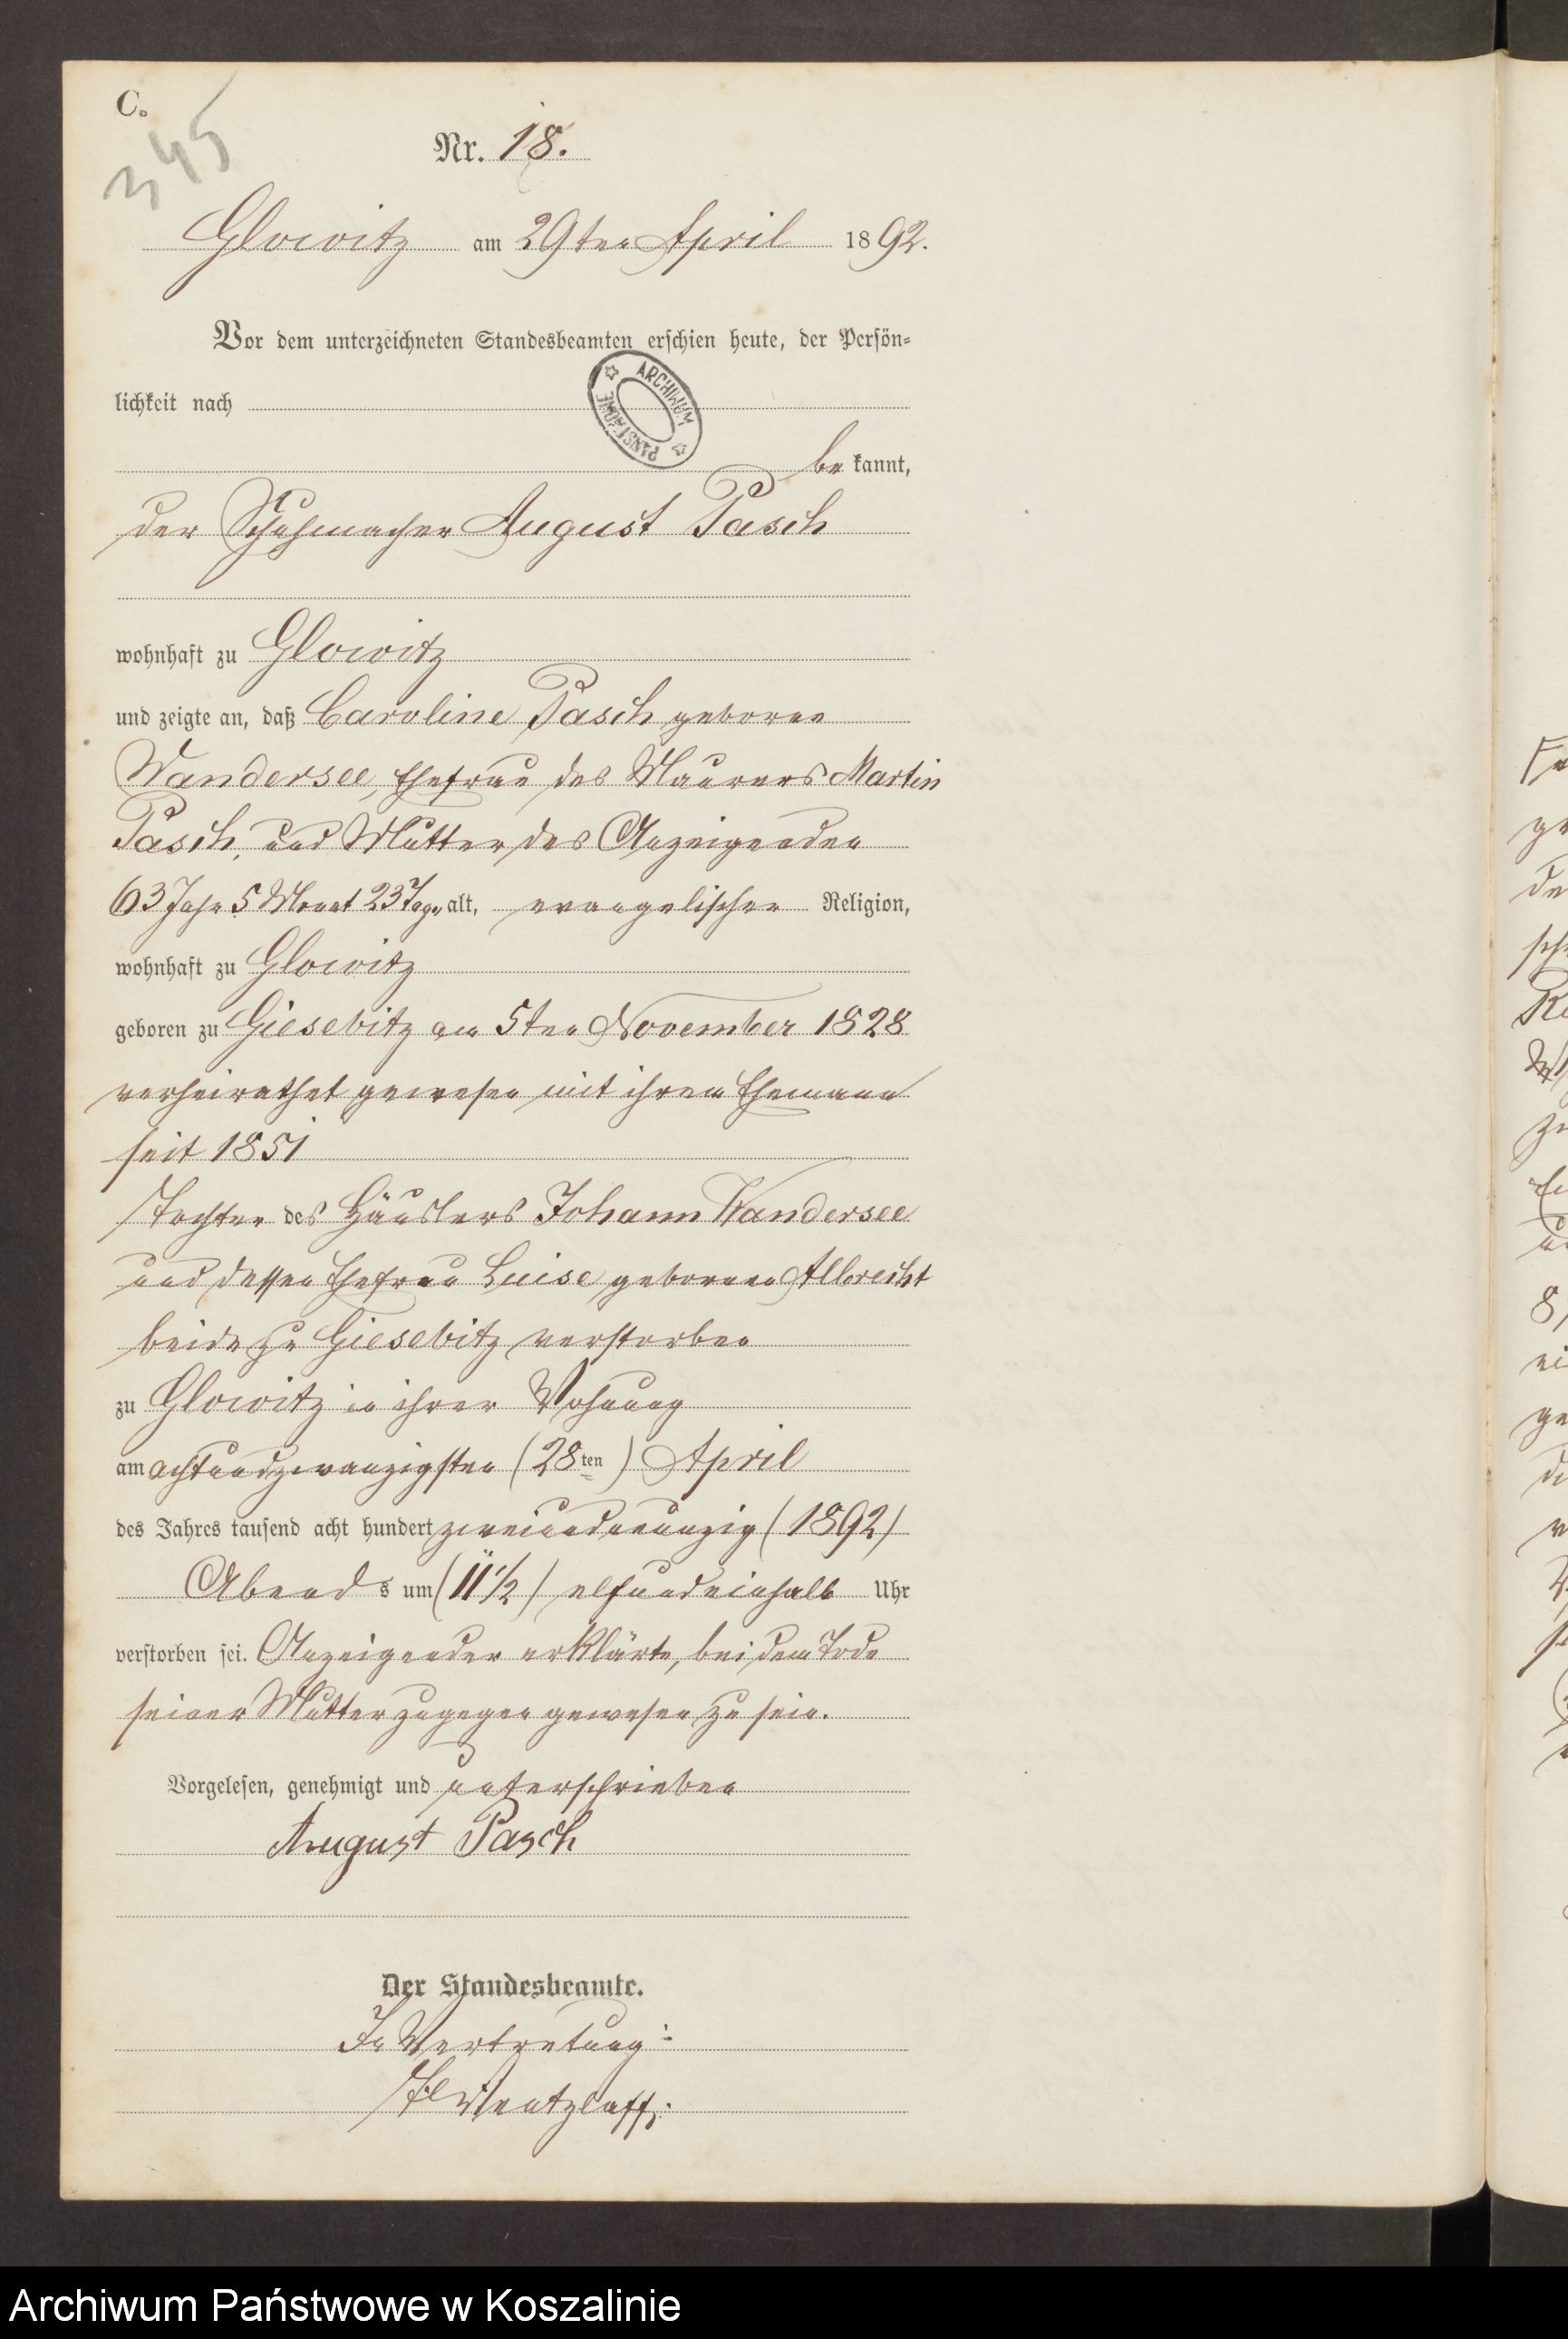 C.
345
Nr. 18.
Glowitz am 29ten April 1892.
Vor dem unterzeichneten Standesbeamten erschien heute, der Persön-
lichkeit nach
ARCHIWUM PAŃSTWOWE
bekannt,
der Schuhmacher August Pasch
wohnhaft zu Glowitz
und zeigte an, daß Caroline Pasch geborne
Wandersee, Ehefrau des Maurers Martin
Pasch, und Mutter des Anzeigenden
63 Jahr 5 Monat 23 Tage alt, evangelischer Religion,
wohnhaft zu Glowitz
geboren zu Giesebitz am 5ten November 1828
verheirathet gewesen mit ihrem Ehemann
seit 1851
Tochter des Häuslers Johann Wandersee
und dessen Ehefrau Luise geborenen Albrecht
beide zu Giesebitz verstorben
zu Glowitz in ihrer Wohnung
am achtundzwanzigsten (28ten) April
des Jahres tausend acht hundert zweiundneunzig (1892)
Abends um (11 1/2) elfundeinhalb Uhr
verstorben sei. Anzeigender erklärte, bei dem Tode
seiner Mutter zugegen gewesen zu sein.
Vorgelesen, genehmigt und unterschrieben
August Pasch
Der Standesbeamte.
In Vertretung:
Wentzlaff.
Archiwum Państwowe w Koszalinie